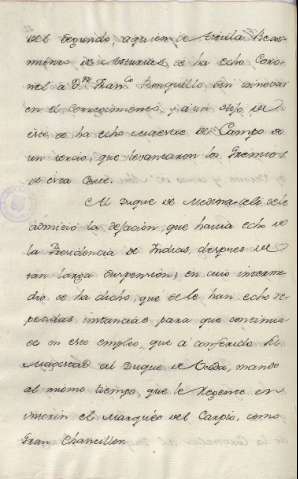 del Segundo, a quien le
de ha echo Coro-
nel a D.n Fran.co Ronquillo, sin
en el Corregimiento, y a un hijo del
de ha echo Maestre de Campo de
un tercio, que levantaron los Gremios
de esta Corte.
Al Duque de Medina-celi se le
admitió la dejación, que havia echo de
la Presidencia de Indias, despues de
tan larga suspension; en cuio interme-
dio se ha dicho, que se le han echo re-
petidas instancias para que continua-
se en ese empleo, que a conferido Su
Magestad al Duque de mando
al mismo tiempo, que le
el Marqués del Carpio, como
Gran Chanciller.